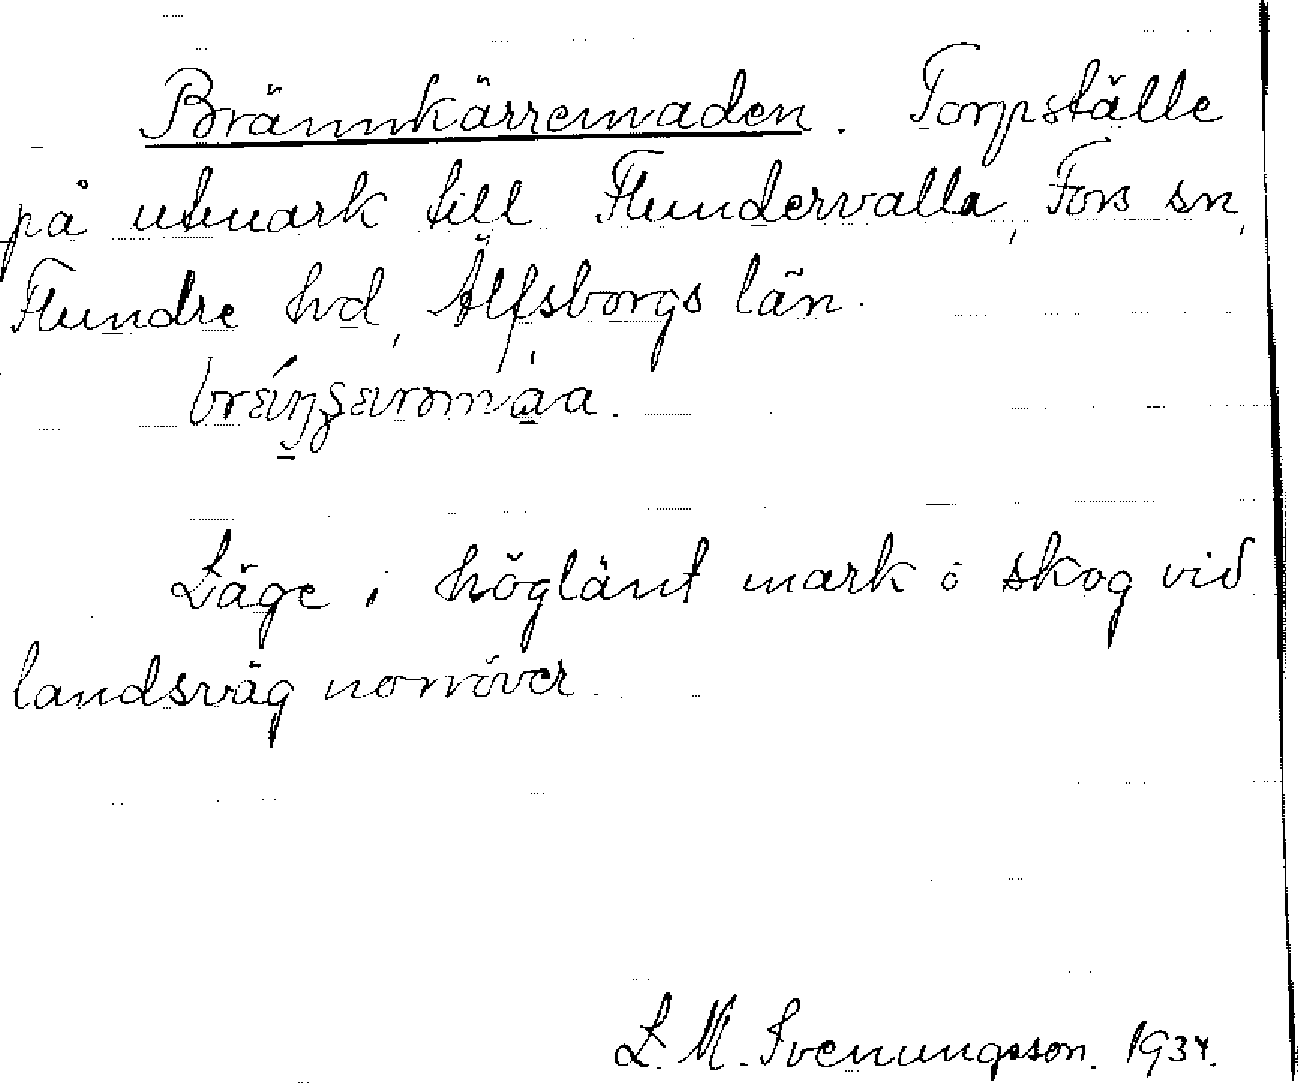 Brännkärremaden. Torpställe
på utmark till Flundervalla, Fors sn,
Flundre hd, Älfsborgs län.
Läge i höglänt mark i skog vid
landsväg norröver
L. M. Svenungsson. 1934.